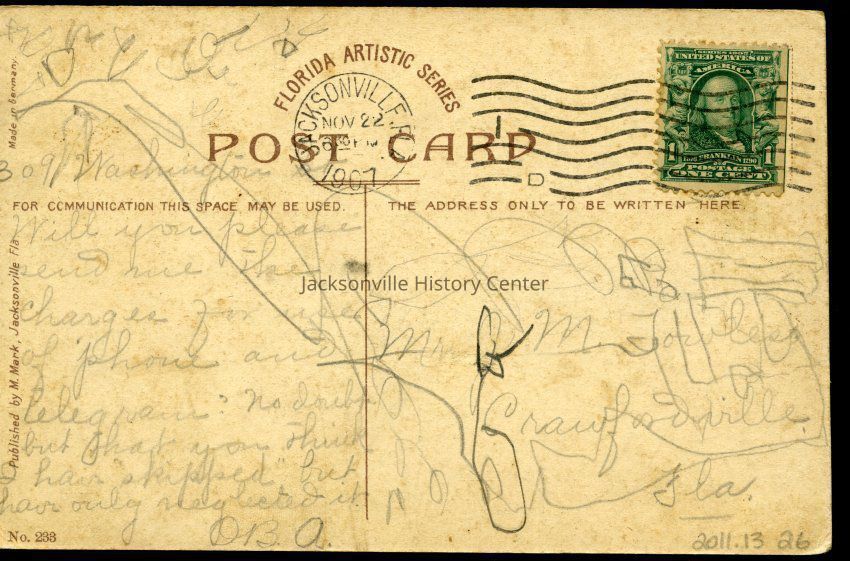 FLORIDA ARTISTIC SERIES
JACKSONVILLE, FLA.
NOV 22
1907
D
SERIES 1902
UNITED STATES OF
AMERICA
1 FRANKLIN 1790 1
POSTAGE
ONE CENT
POST CARD
Made in Germany.
309 Washington
FOR COMMUNICATION THIS SPACE MAY BE USED.
THE ADDRESS ONLY TO BE WRITTEN HERE.
Will you please
send me the
charges for use
of phone and
telegram? No doubt
but that you think
I hav "skipped" but
hav only neglected it.
O.B.A.
M. Towles
Crawfordville.
Fla.
Published by M. Mark, Jacksonville Fla
No. 233
2011.13 26
Jacksonville History Center